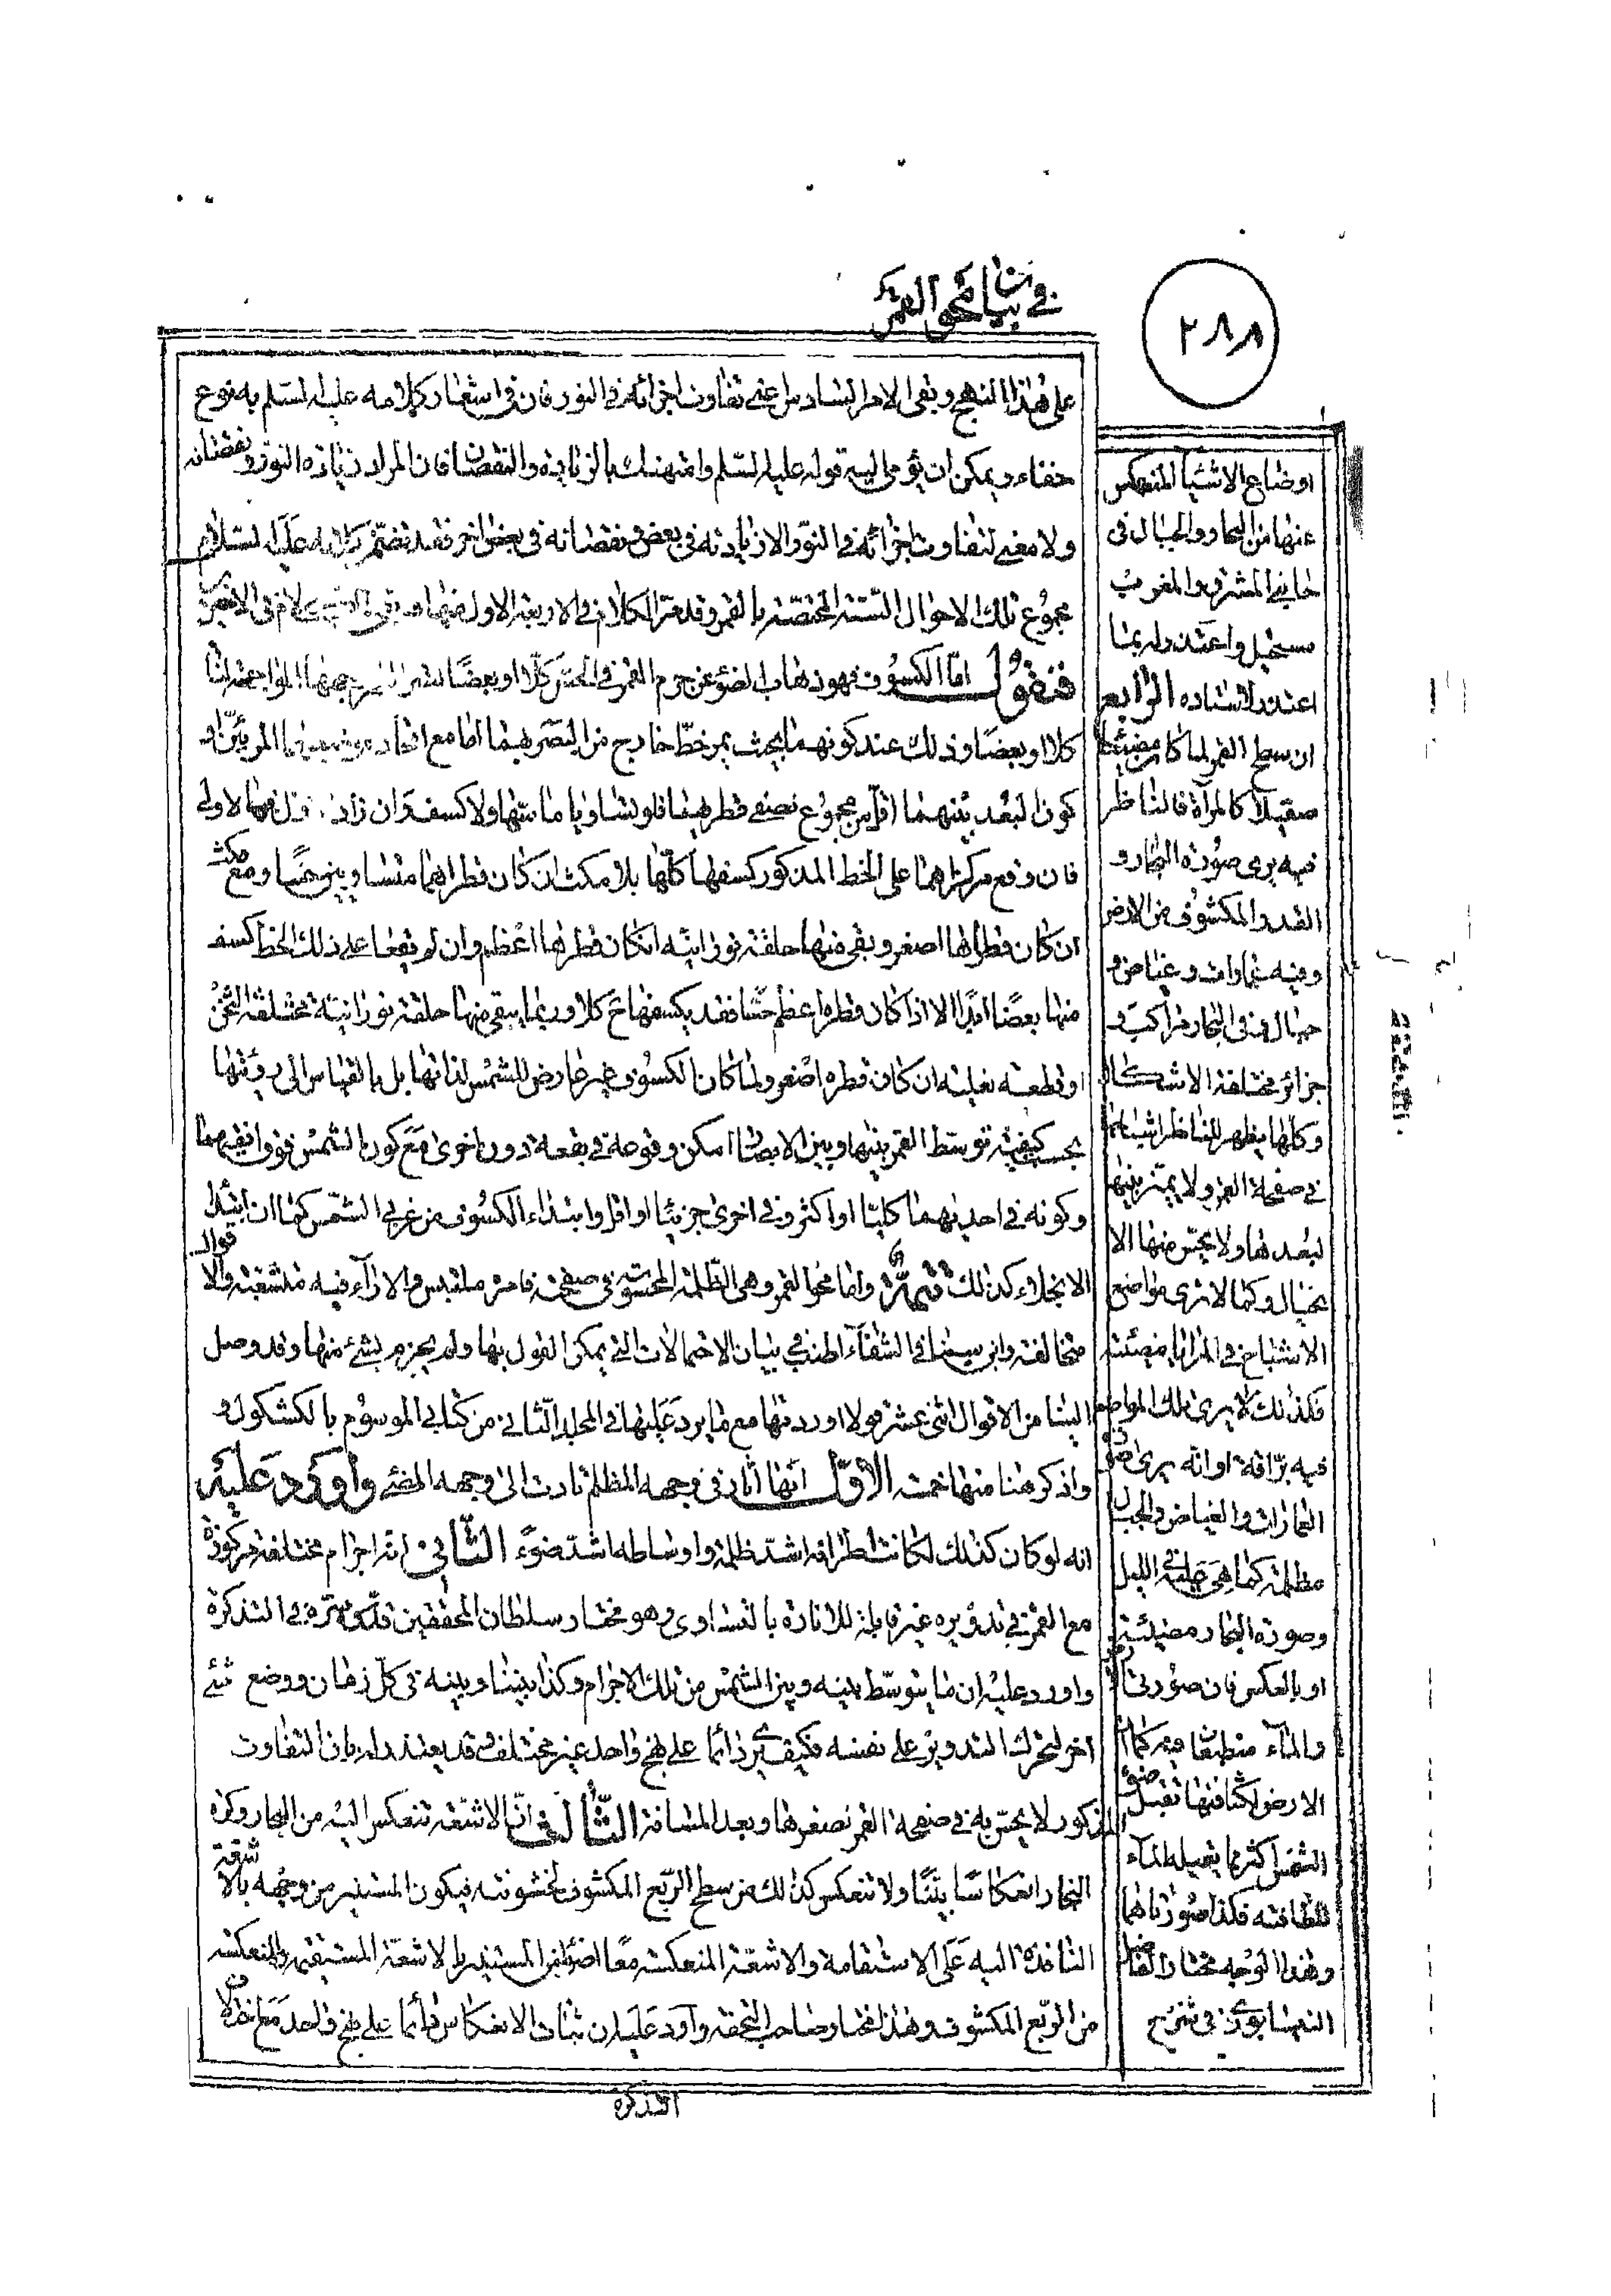 في بيان محو القمر
٢٨٨
على هذا النهج وبقى الامر السادس اعنى تفاوت اجزائه في النور فان في اشعار كلامه عليه السلم به نوع
خفاء ويمكن ان يؤمى اليه قوله عليه السلم وامتهنك بالزيادة والنقصان فان المراد زيادة النور ونقصانه
ولا معنى لتفاوت اجزائه في النور الا زيادته في بعض ونقصانه في بعض اخر فقد تضمن كلامه عليه السلام
مجموع تلك الاحوال الستة المختصة بالقمر وقد مر الكلام في الاربعة الاول منها وبقى الكلام في الاخيرين
فنقول اما الكسوف فهو ذهاب الضوء عن جرم القمر في الحس كلا او بعضا لستر وجهها المواجه لنا
كلا او بعضا وذلك عند كونهما بحيث يمر خط خارج من البصر بهما اما مع اتحاد موضعيهما المرئيين او
كون البعد بينهما اقل من مجموع نصفى قطريهما فلو تساويا ماسها ولا كسف وان زاد فلا اولى
فان وقع مركزاهما على الخط المذكور كسفها كلها بلا مكث ان كان قطراهما متساويين حسا ومع مكث
ان كان قطرها اصغر وبقى منها حلقة نورانية ان كان قطرها اعظم وان لم يقعا على ذلك الخط كسف
منها بعضا ابدا الا اذا كان قطره اعظم حسا فقد يكسفها ح كلا وربما يبقى منها حلقة نورانية مختلفة الثخن
او قطعة نعلية ان كان قطره اصغر ولما كان الكسوف غير عارض للشمس لذاتها بل بالقياس الى رؤيتها
بحسب كيفية توسط القمر بينها وبين الابصار امكن وقوعه في بقعة دون اخرى مع كون الشمس فوق افقيهما
وكونه في احديهما كليا او اكثر وفي اخرى جزئيا او اقل وابتداء الكسوف من غربى الشمس كما ان ابتداء
الانجلاء كذلك تتمة واما محو القمر وهي الظلمة المحسوسة في صفحته فامره ملتبس والاراء فيه متشعبة والاقوال
متخالفة وابن سينا في الشفاء اطنب في بيان الاحتمالات التي يمكن القول بها ولم يجزم بشئ منها وقد وصل
الينا من الاقوال اثنى عشر قولا اوردتها مع ما يرد عليها في المجلد الثاني من كتابي الموسوم بالكشكول و
واذكر هنا منها خمسة الاول انها اثار في وجهه المظلم تادت الى وجهه المضئ واورد عليه
انه لو كان كذلك لكانت اطرافه اشد ظلمة واوساطه اشد ضوء الثاني انه اجرام مختلفة مركوزة
مع القمر في تدويره غير قابلة للانارة بالتساوى وهو مختار سلطان المحققين قدس سره في التذكرة
واورد عليه ان ما يتوسط بينه وبين الشمس من تلك الاجرام وكذا بيننا وبينه في كل زمان ووضع شئ
اخر لتحرك التدوير على نفسه فكيف يرى دائما على نهج واحد غير مختلف وقد يعتذر له بان التفاوت
المذكور لا يحس به في صفحة القمر لصغرها وبعد المسافة الثالث ان الاشعة تنعكس اليه من البحار وكرة
البخار انعكاسا بينا ولا تنعكس كذلك من سطح الربع المكشوف لخشونته فيكون المستنير من وجهه بالاشعة
النافذة اليه على الاستقامة والاشعة المنعكسة معا اضوأ من المستنير بالاشعة المستقيمة والمنعكسة
من الربع المكشوف وهذا مختار صاحب التحفة واورد عليه ان ثبات الانعكاس دائما على نهج واحد مع اختلاف
اوضاع الاشياء المنعكس
عنها من البحار والجبال في
جانبى المشرق والمغرب
مستحيل واعتذر له بما
اعتذر لاستاده الرابع
ان سطح القمر لما كان
صقيلا كالمرآة فالناظر
فيه يرى صورة البحار و
القدر المكشوف من الارض
وفيه عمارات وغياض و
جبال وفي البحار مراكب و
جزائر مختلفة الاشكال
وكلها يظهر للناظر اشباحها
في صفحة القمر ولا يميز بينها
لبعدها ولا يحس منها الا
بخيال وكما لا ترى مواضع
الاشباح في المرايا مضيئة
فكذلك لا يرى تلك المواضع
فيه براقة او انه يرى صورة
العمارات والغياض والجبال
مظلمة كما هي عليه في الليل
وصورة البحار مضيئة
او بالعكس فان صورتى الارض
والماء منطبعتان فيه كما ان
الارض لكثافتها تقبل ضوء
الشمس اكثر مما يقبله الماء
للطافته فكذا صورتاهما
وهذا الوجه مختار الفاضل
النيسابورى في شرح
التذكرة